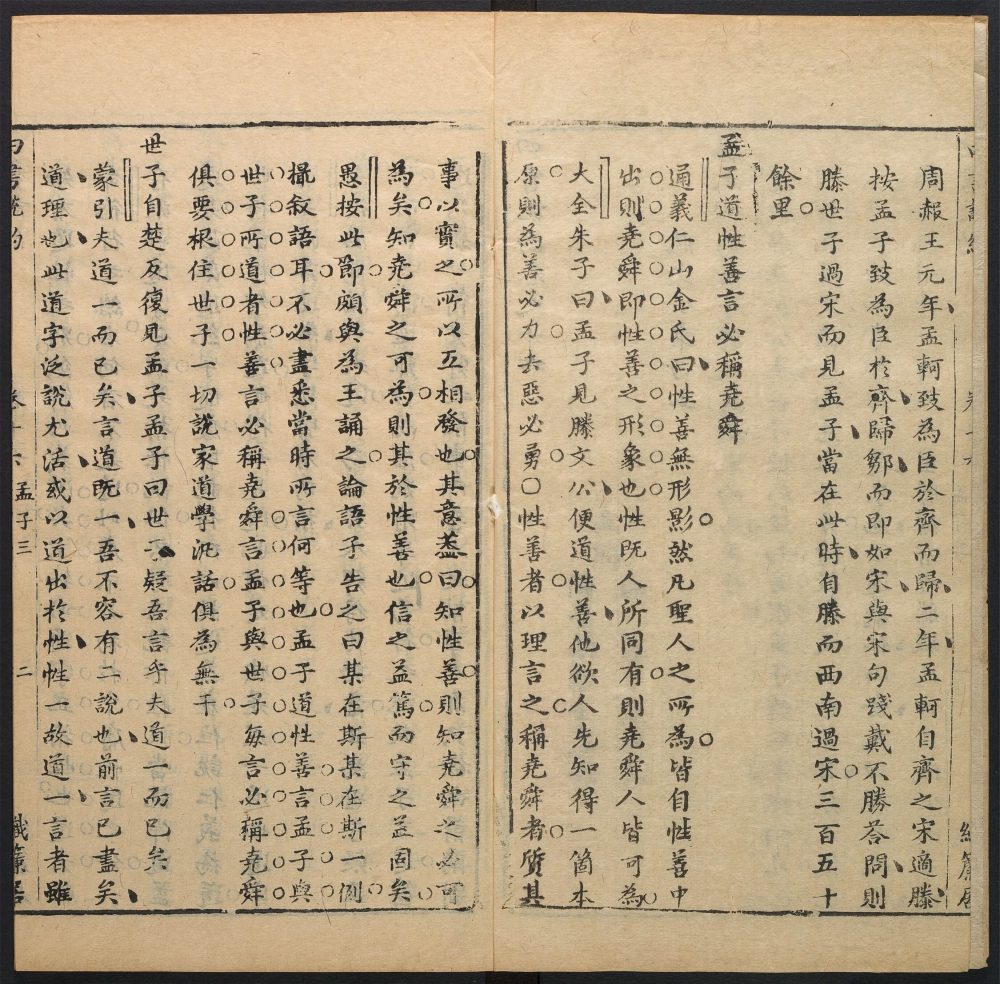 周赧王元年孟軻致為臣於齊而歸二年孟軻自齊之宋適滕
按孟子致為臣於齊歸鄒而即如宋與宋句踐戴不勝荅問則
滕世子過宋而見孟子當在此時自滕而西南過宋三百五十
餘里
孟子道性善言必稱堯舜
通義仁山金氏曰性善無形影然凡聖人之所為皆自性善中
出則堯舜即性善之形象也性既人所同有則堯舜人皆可為
大全朱子曰孟子見滕文公便道性善他欲人先知得一箇本
原則為善必力去惡必勇○性善者以理言之稱堯舜者質其
事以實之所以互相發也其意葢曰知性善則知堯舜之必可
為矣知堯舜之可為則其於性善也信之益篤而守之益固矣
愚按此節頗與為王誦之論語子告之曰某在斯某在斯一例
撮敘語耳不必盡悉當時所言何等也孟子道性善言孟子與
世子所道者性善言必稱堯舜言孟子與世子每言必稱堯舜
俱要根住世子一切說家道學汎話俱為無干
世子自楚反復見孟子孟子曰世子疑吾言乎夫道一而已矣
蒙引夫道一而已矣言道既一吾不容有二說也前言已盡矣
道理也此道字泛說尤活或以道出於性性一故道一言者雖
四書說約 卷十六 孟子三 二 織簾居